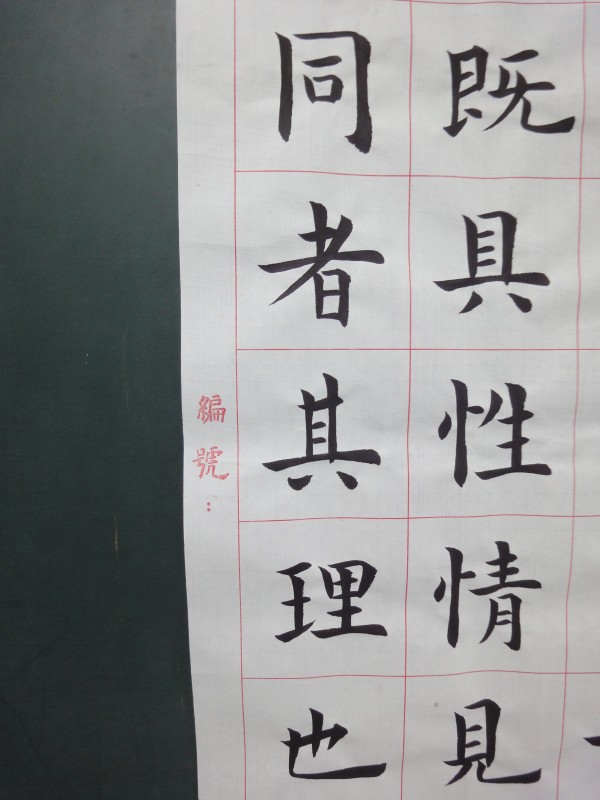 既具性情見
同者其理也
編號：